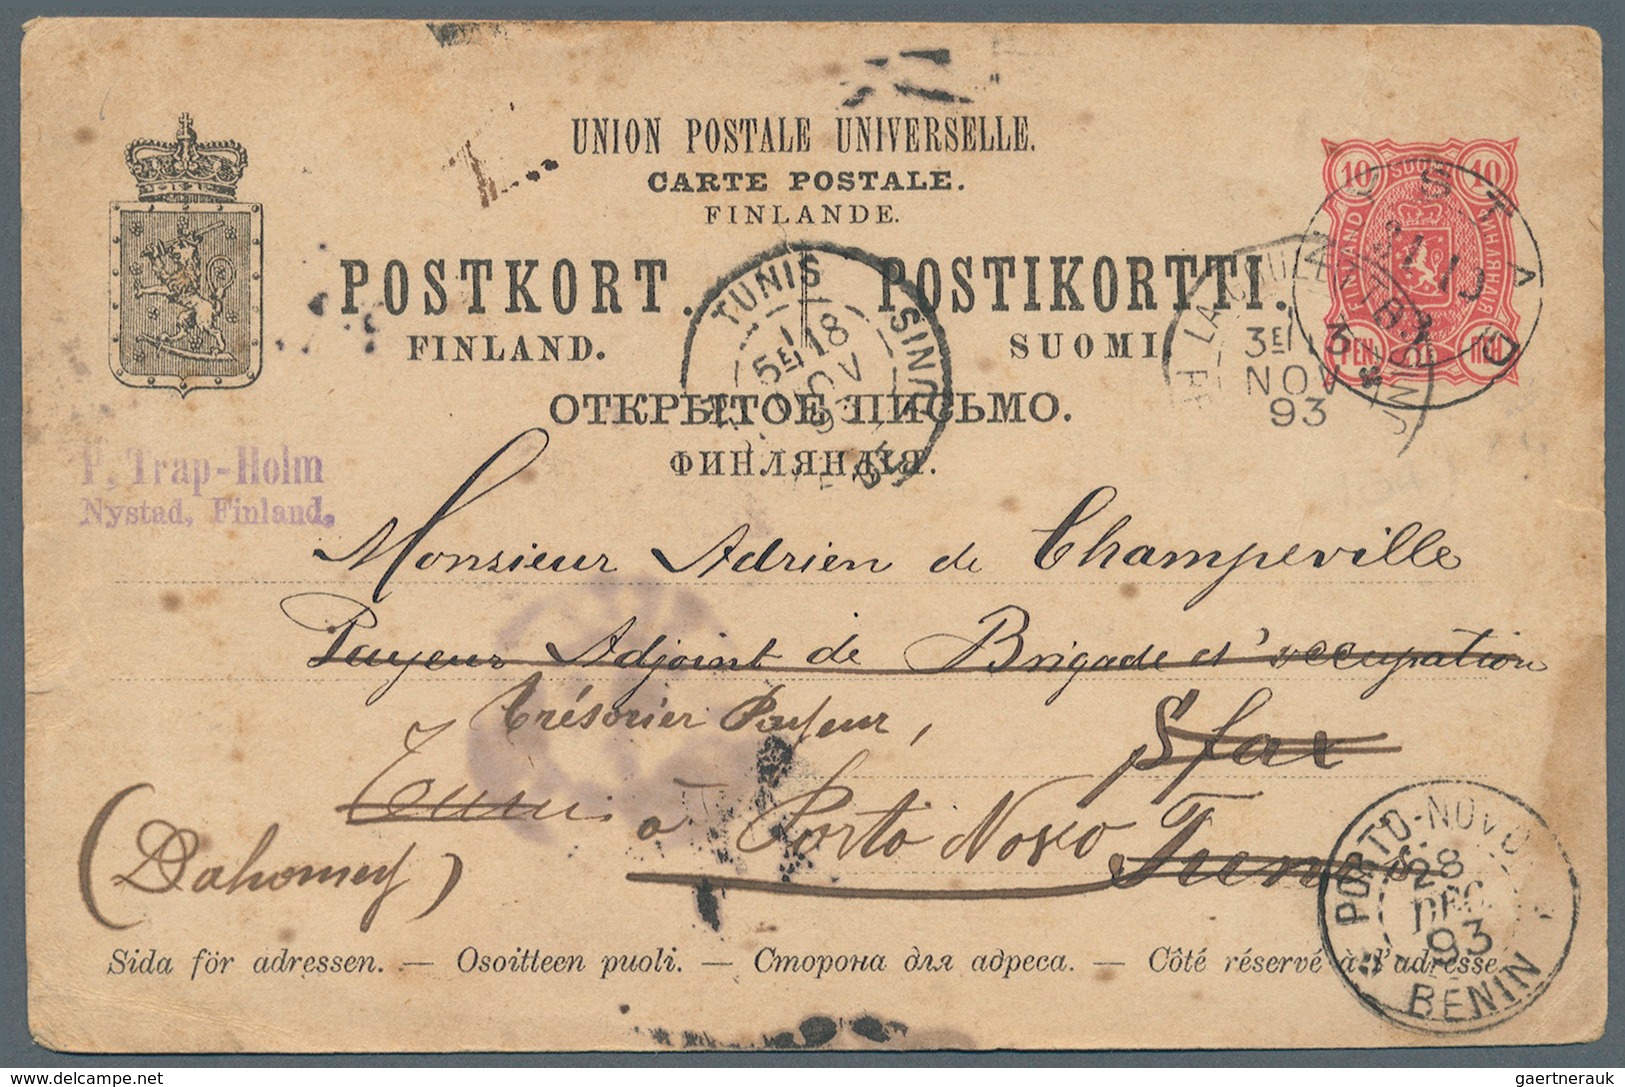 UNION POSTALE UNIVERSELLE.
CARTE POSTALE.
FINLANDE.
POSTKORT. POSTIKORTTI.
FINLAND. SUOMI.
ОТКРЫТОЕ ПИСЬМО.
ФИНЛЯНДІЯ.
10 10
PEN. ПЕН.
NYSTAD
TUNIS
1 18
5E NOV
TUNISIE
3E 3
NOV
93
P. Trap-Holm
Nystad, Finland.
Monsieur Adrien de Champeville
Payeur Adjoint de Brigade d'occupation
Trésorier Payeur,
Sfax
Tunis
à Porto Novo
(Dahomey)
PORTO-NOVO
28
DEC
93
BENIN
Sida för adressen. — Osoitteen puoli. — Сторона для адреса. — Côté réservé à l'adresse.
gaertnerauk